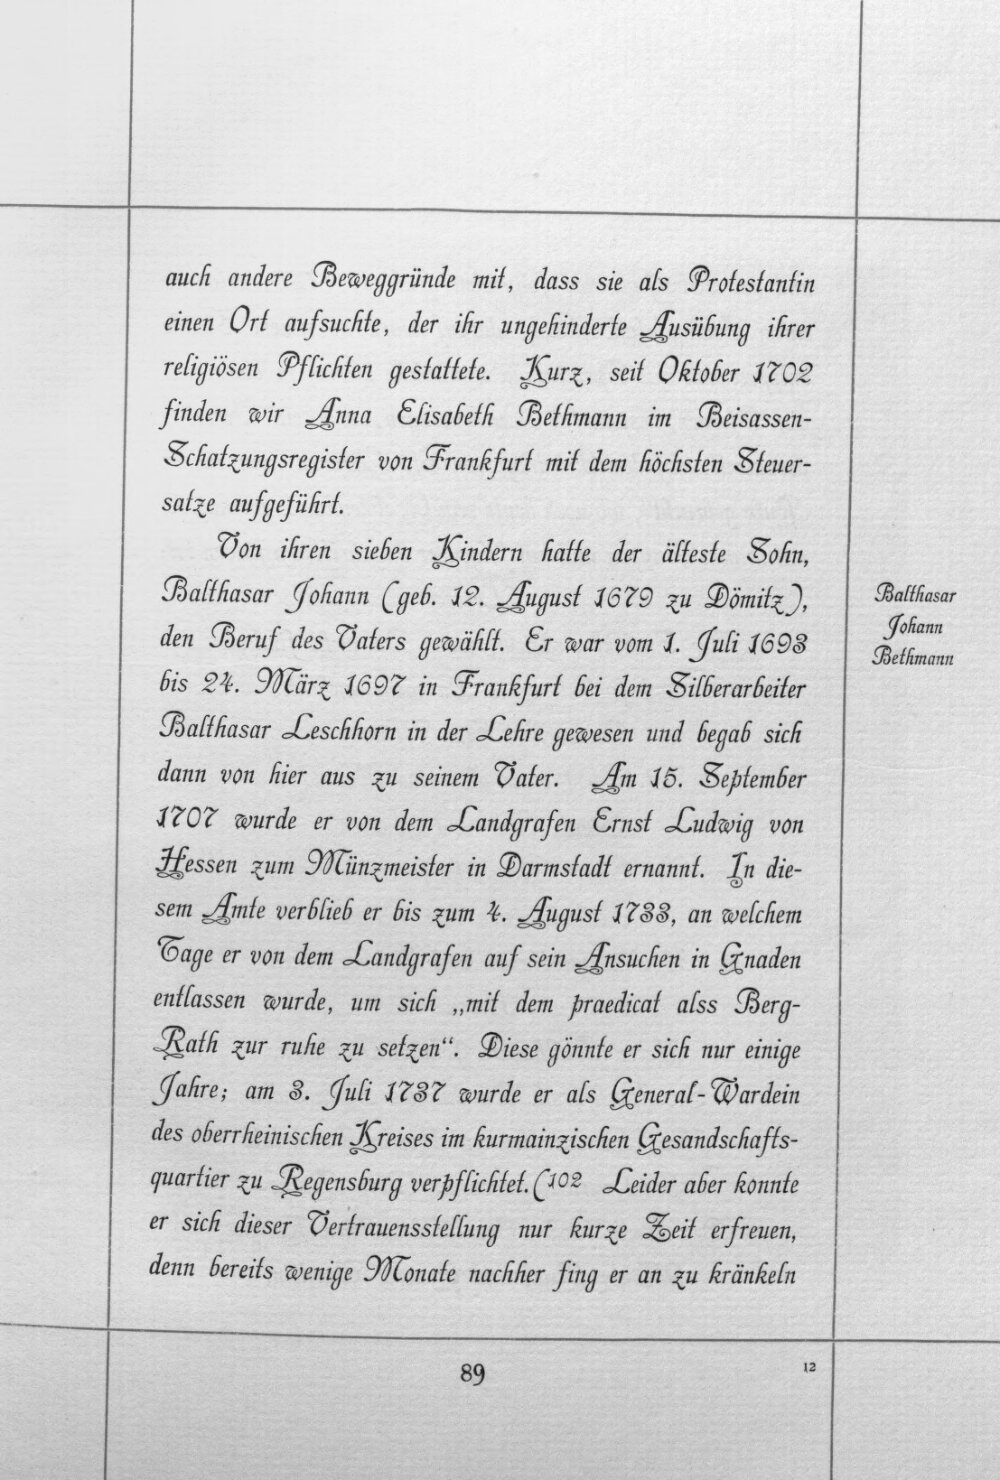 auch andere Beweggründe mit, dass sie als Protestantin
einen Ort aufsuchte, der ihr ungehinderte Ausübung ihrer
religiösen Pflichten gestattete. Kurz, seit Oktober 1702
finden wir Anna Elisabeth Bethmann im Beisassen-
Schatzungsregister von Frankfurt mit dem höchsten Steuer-
satze aufgeführt.
Von ihren sieben Kindern hatte der älteste Sohn,
Balthasar Johann (geb. 12. August 1679 zu Dömitz),
den Beruf des Vaters gewählt. Er war vom 1. Juli 1693
bis 24. März 1697 in Frankfurt bei dem Silberarbeiter
Balthasar Leschhorn in der Lehre gewesen und begab sich
dann von hier aus zu seinem Vater. Am 15. September
1707 wurde er von dem Landgrafen Ernst Ludwig von
Hessen zum Münzmeister in Darmstadt ernannt. In die-
sem Amte verblieb er bis zum 4. August 1733, an welchem
Tage er von dem Landgrafen auf sein Ansuchen in Gnaden
entlassen wurde, um sich „mit dem praedicat alss Berg-
Rath zur ruhe zu setzen“. Diese gönnte er sich nur einige
Jahre; am 3. Juli 1737 wurde er als General-Wardein
des oberrheinischen Kreises im kurmainzischen Gesandschafts-
quartier zu Regensburg verpflichtet.(102 Leider aber konnte
er sich dieser Vertrauensstellung nur kurze Zeit erfreuen,
denn bereits wenige Monate nachher fing er an zu kränkeln
Balthasar
Johann
Bethmann
89
12